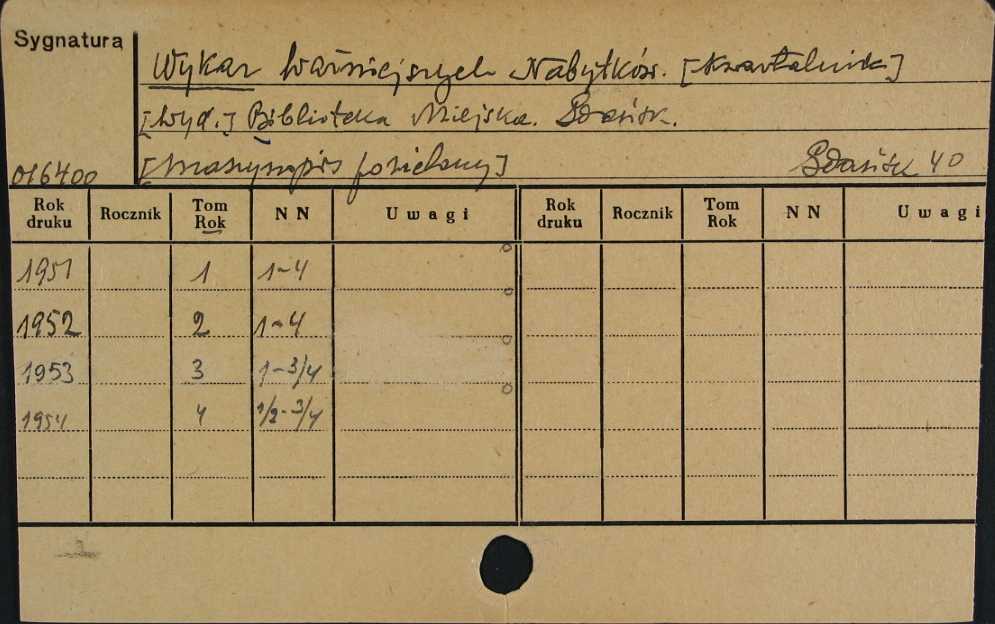 Sygnatura
Wykaz ważniejszych Nabytków. [Kwartalnik]
[Wyd.] Biblioteka Miejska. Gdańsk.
[Maszynopis powielany] Gdańsk 40
016400
Rok druku Rocznik Tom Rok NN Uwagi Rok druku Rocznik Tom Rok NN Uwagi
1951 1 1-4 o
1952 2 1-4 o
1953 3 1-3/4 o
1954 4 1/2-3/4 o